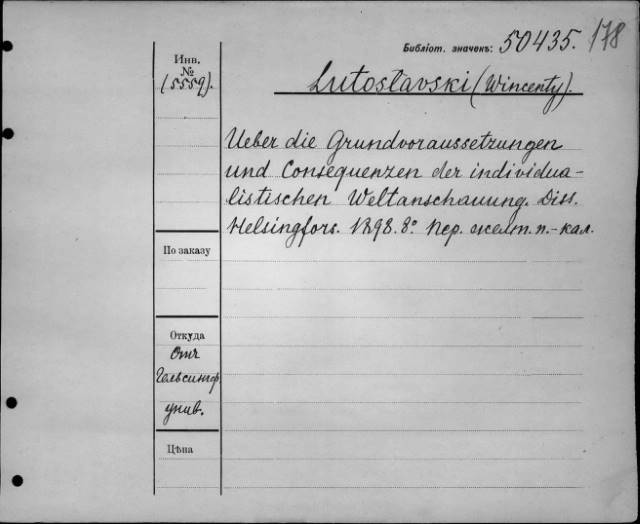 Библіот. значекъ: 50435. 178
Инв.
№
(5559).
Lutosławski (Wincenty).
Ueber die Grundvoraussetzungen
und Consequenzen der individua-
listischen Weltanschauung. Diss.
Helsingfors. 1898. 8° Пер. желт. п.-кал.
По заказу
Откуда
Отъ
Гельсингф.
унив.
Цѣна